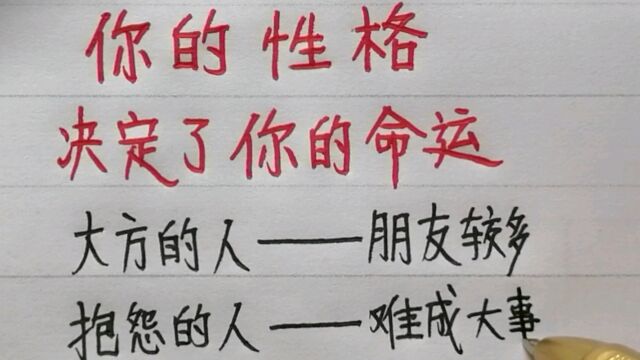 你的性格
决定了你的命运
大方的人——朋友较多
抱怨的人——难成大事